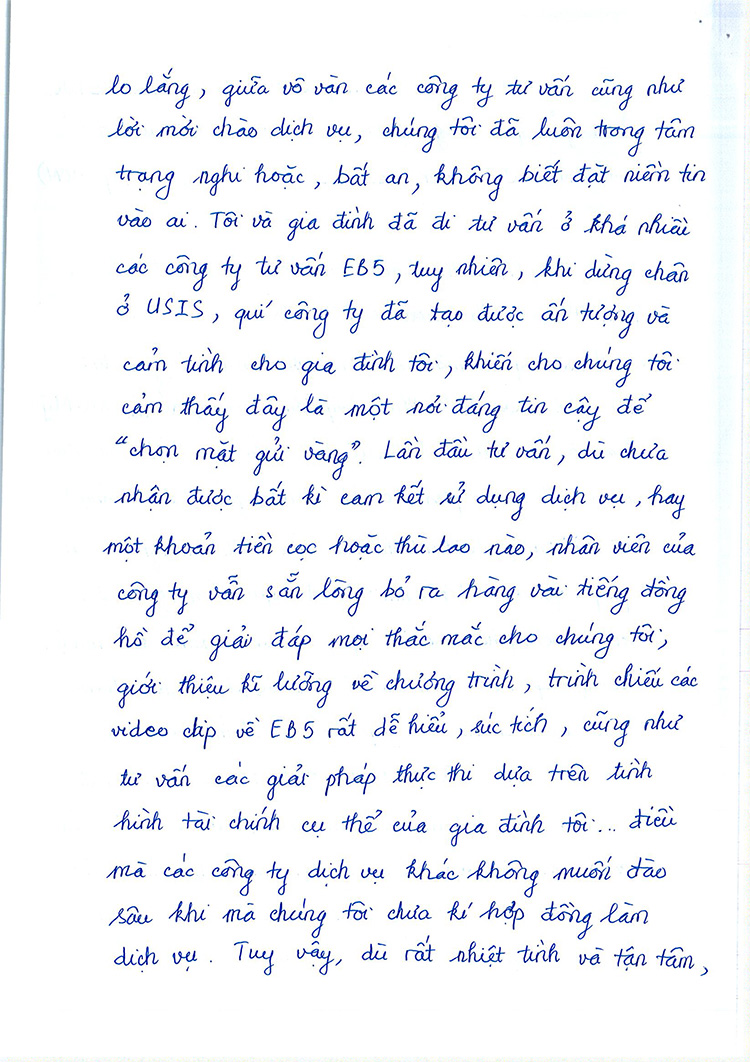 lo lắng, giữa vô vàn các công ty tư vấn cũng như
lời mời chào dịch vụ, chúng tôi đã luôn trong tâm
trạng nghi hoặc, bất an, không biết đặt niềm tin
vào ai. Tôi và gia đình đã đi tư vấn ở khá nhiều
các công ty tư vấn EB5, tuy nhiên, khi dừng chân
ở USIS, quí công ty đã tạo được ấn tượng và
cảm tình cho gia đình tôi, khiến cho chúng tôi
cảm thấy đây là một nơi đáng tin cậy để
"chọn mặt gửi vàng". Lần đầu tư vấn, dù chưa
nhận được bất kì cam kết sử dụng dịch vụ, hay
một khoản tiền cọc hoặc thù lao nào, nhân viên của
công ty vẫn sẵn lòng bỏ ra hàng vài tiếng đồng
hồ để giải đáp mọi thắc mắc cho chúng tôi,
giới thiệu kĩ lưỡng về chương trình, trình chiếu các
video clip về EB5 rất dễ hiểu, súc tích, cũng như
tư vấn các giải pháp thực thi dựa trên tình
hình tài chính cụ thể của gia đình tôi... điều
mà các công ty dịch vụ khác không muốn đào
sâu khi mà chúng tôi chưa kí hợp đồng làm
dịch vụ. Tuy vậy, dù rất nhiệt tình và tận tâm,